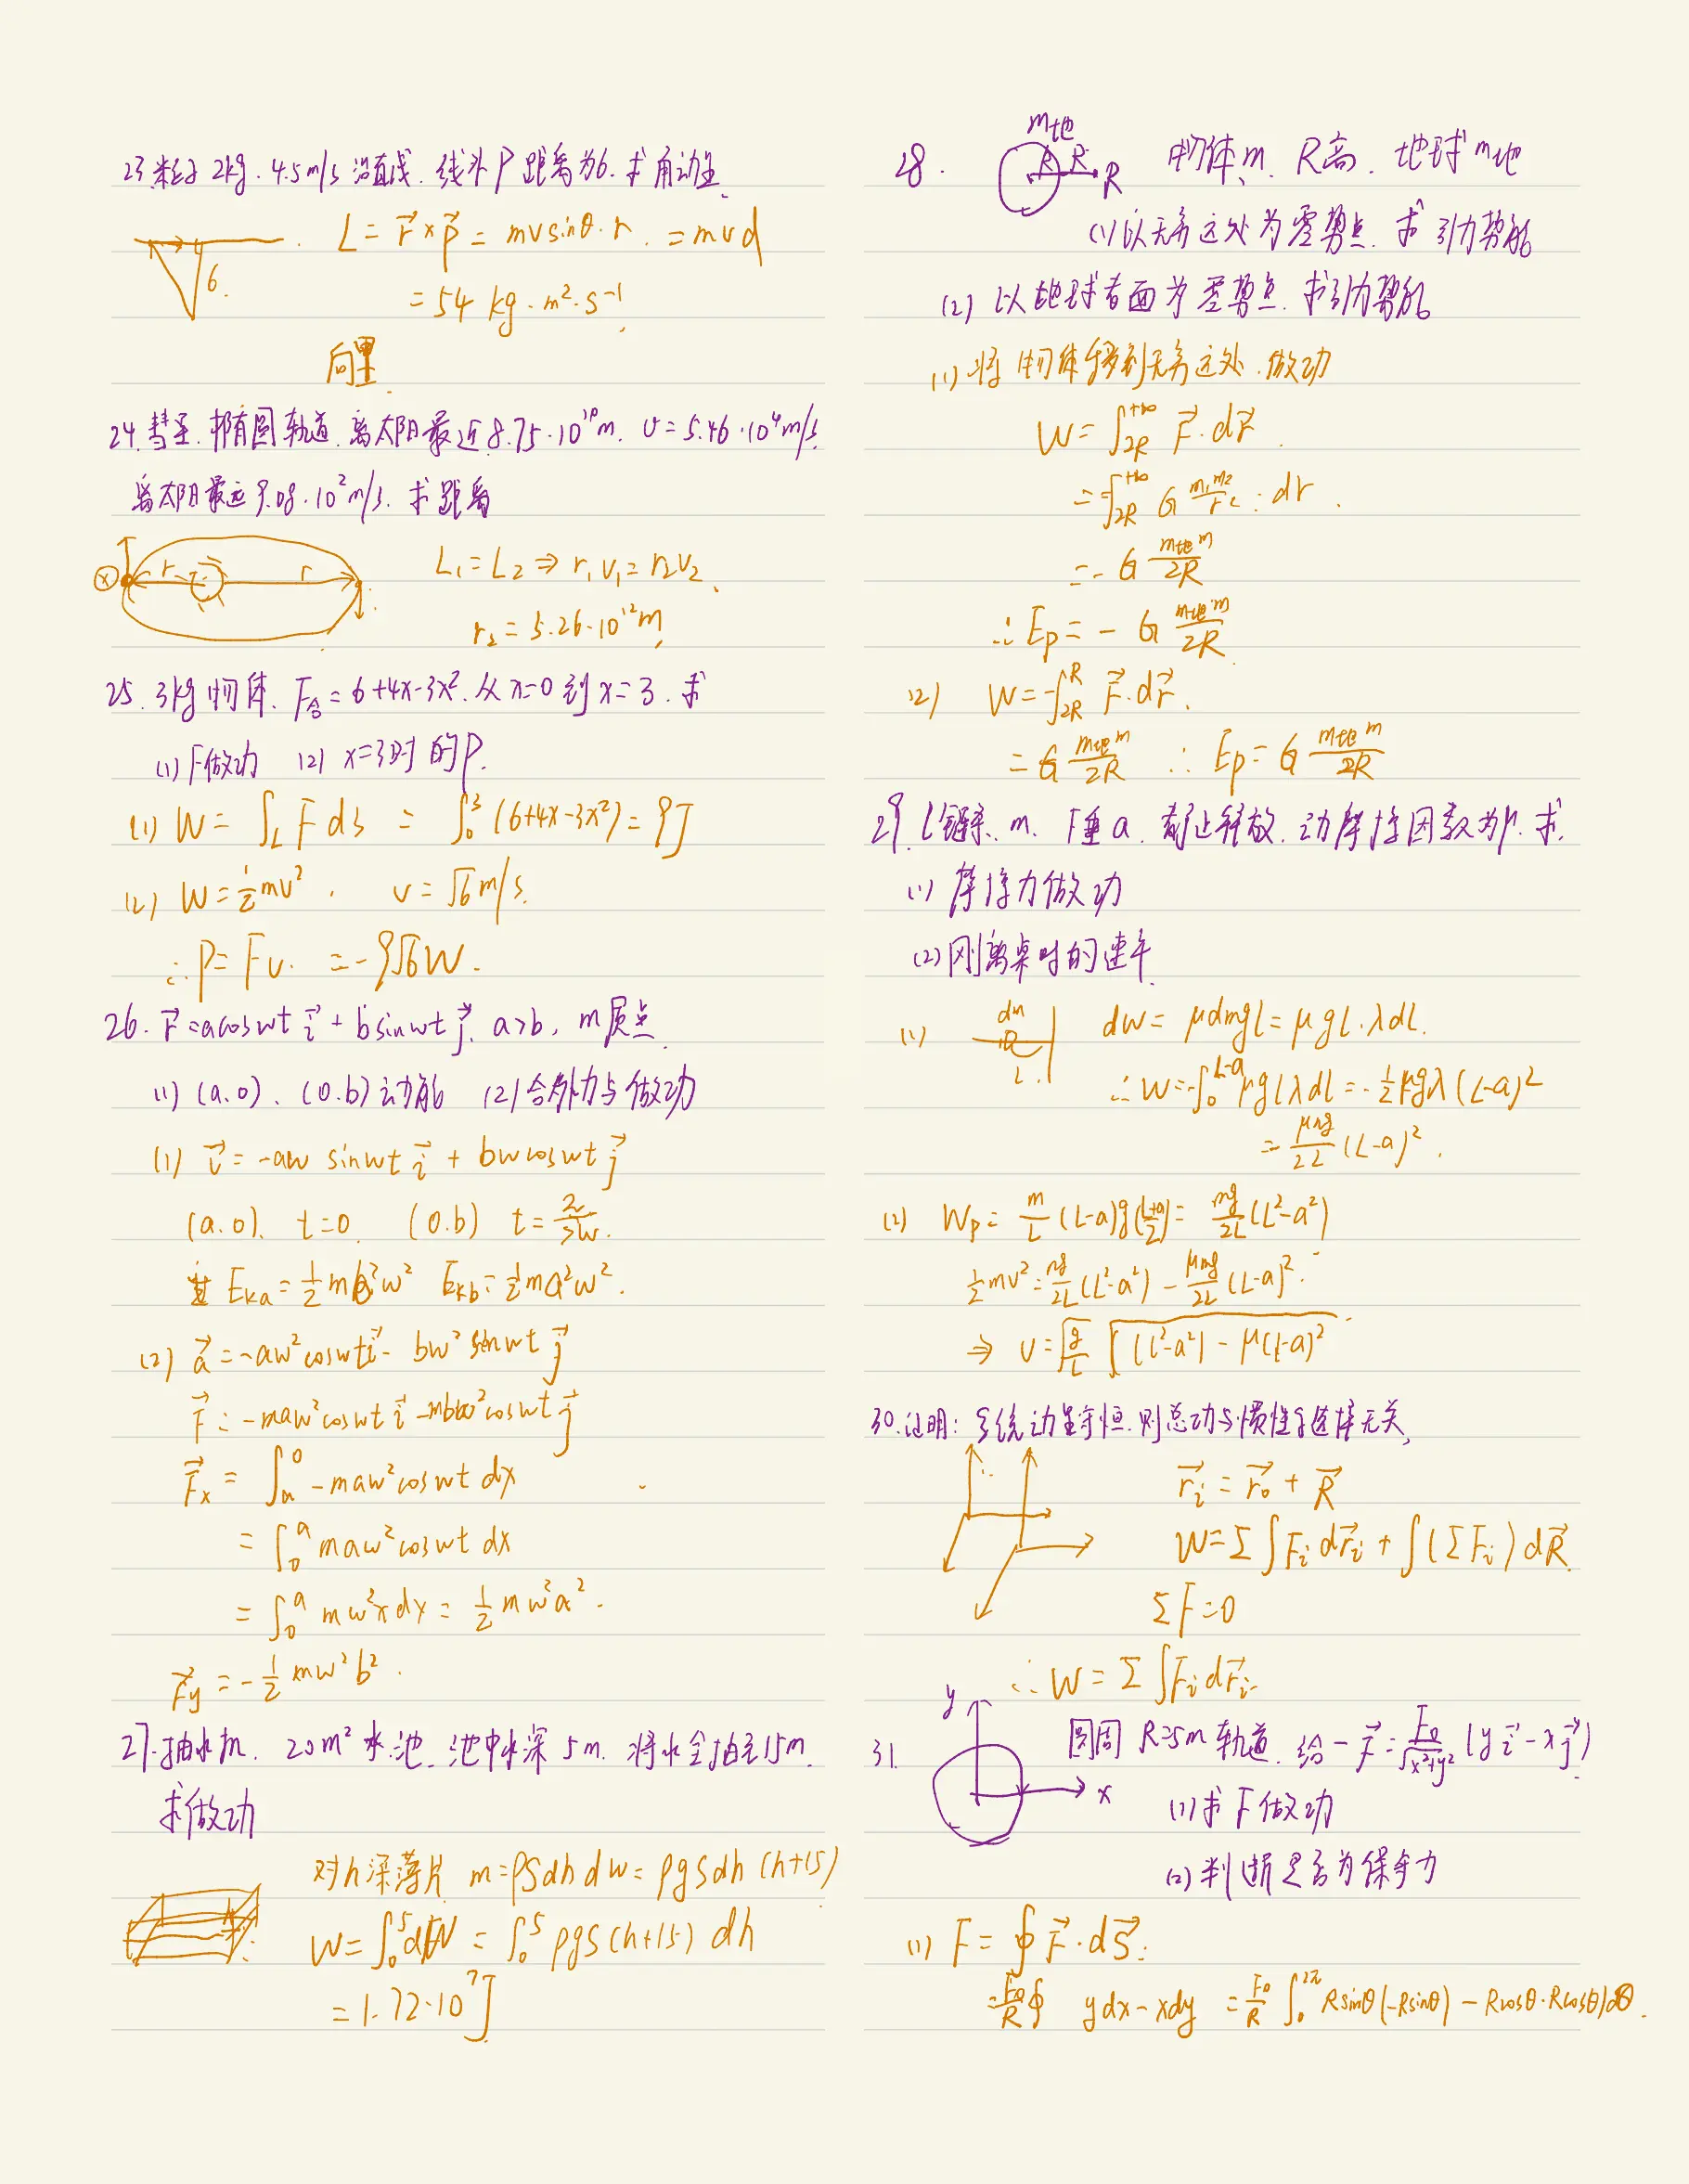 23.粒子 2kg. 4.5m/s 沿直线. 线外P距离为6. 求角动量.
6.
L = \vec{r} × \vec{p} = mv sinθ · r. = mvd
= 54 kg·m²·s⁻¹
向里.
24.彗星.椭圆轨道.离太阳最近8.75·10¹⁰m. v=5.46·10⁴m/s.
离太阳最远9.08·10²m/s. 求距离
r r
L₁=L₂ ⇒ r₁v₁=r₂v₂.
r₂ = 5.26·10¹²m
25. 3kg物体. F合=6+4x-3x². 从x=0到x=3. 求
(1) F做功 (2) x=3时的P.
(1) W = ∫_L F ds = ∫₀³ (6+4x-3x²) = 9J
(2) W=½mv². v=√6 m/s.
∴P= Fv. = -9√6W.
26. \vec{r}=acoswt \vec{i} + bsinwt \vec{j}. a>b, m质点
(1) (a.0)、(0.b)动能 (2)合外力与做功
(1) \vec{v} = -aw sinwt \vec{i} + bwcoswt \vec{j}
(a.0). t=0. (0.b) t=
E_{ka} = ½mb²w² E_{kb} = ½ma²w².
(2) \vec{a} = -aw²coswt\vec{i} - bw²sinwt \vec{j}
\vec{F} = -maw²coswt \vec{i} -mbw²coswt \vec{j}
\vec{F}x = ∫_a^0 -maw²coswt dx
= ∫₀^a maw²coswt dx
= ∫₀^a mw²xdx = ½mw²a².
\vec{F}y = -½mw²b².
27.抽水机. 20m²水池. 池中水深5m. 将水全抽至15m.
求做功
对h深薄片 m=ρSdh dw=ρgSdh(h+15)
W=∫₀⁵dW = ∫₀⁵ρgS(h+15)dh
= 1.72·10⁷J
28. m地 R R R 物体m. R高. 地球m地
(1)以无穷远处为零势点. 求引力势能
(2)以地球表面为零势点. 求引力势能
(1)将物体移到无穷远处.做功
W=∫_{2R}^{+∞} \vec{F}·d\vec{r}.
=-∫_{2R}^{+∞} G m₁m₂/r² · dr.
=-G m地m/2R
∴Ep = - G m地m/2R
(2) W=-∫_{2R}^{R} \vec{F}·d\vec{r}.
= G m地m/2R ∴ Ep = G m地m/2R
29. l链条. m. 下垂a. 静止释放. 动摩擦因数为μ. 求.
(1) 摩擦力做功
(2)刚离桌时的速率.
(1) dm L. dw= μdmgl=μgl·λdl.
∴W=-∫₀^{L-a} μglλdl = -½μgλ(L-a)²
= - μmg/2L (L-a)².
(2) Wp = m/L (L-a)g(L+a/2) = mg/2L (L²-a²)
½mv²= mg/2L (L²-a²) - μmg/2L (L-a)².
⇒ v=√(g/L) √((l²-a²) - μ(l-a)²)
30.证明: 系统动量守恒.则总功与惯性系选择无关.
\vec{r}_i = \vec{r}_0 + \vec{R}
W=Σ∫F_i d\vec{r}_i + ∫(ΣF_i)d\vec{R}.
ΣF=0
∴W = Σ∫F_i d\vec{r}_i.
31. y x 圆周 R=5m 轨道. 给一\vec{F} = F₀/√(x²+y²) (y\vec{i} - x\vec{j})
(1)求F做功
(2)判断是否为保守力
(1) F = ∮\vec{F}·d\vec{S}.
= F₀/R ∮ ydx - xdy = F₀/R ∫₀^{2π} Rsinθ(-Rsinθ) - Rcosθ·Rcosθ)dθ.